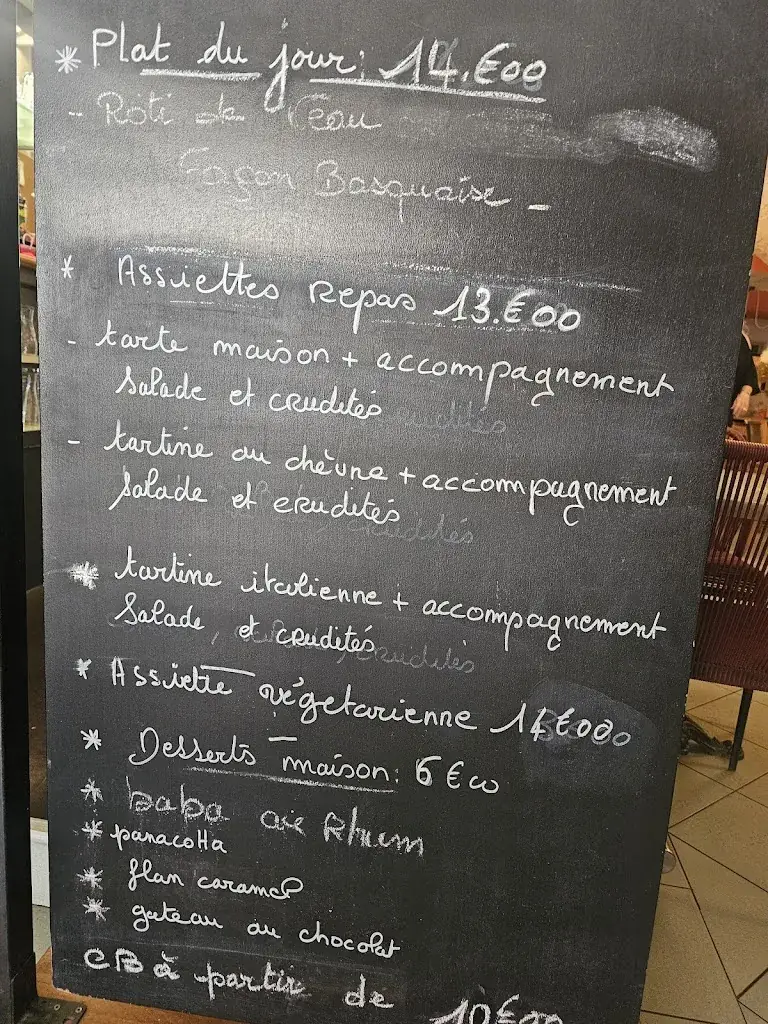 * Plat du jour: 14.€00
- Rôti de Veau
Façon Basquaise -
* Assiettes Repas 13.€00
- tarte maison + accompagnement
Salade et crudités
- tartine au chèvre + accompagnement
Salade et crudités
* tartine italienne + accompagnement
Salade, et crudités
* Assiette végétarienne 14€00
* Desserts maison: 6€00
* baba au Rhum
* panacotta
* flan caramel
* gateau au chocolat
CB à partir de 10€00